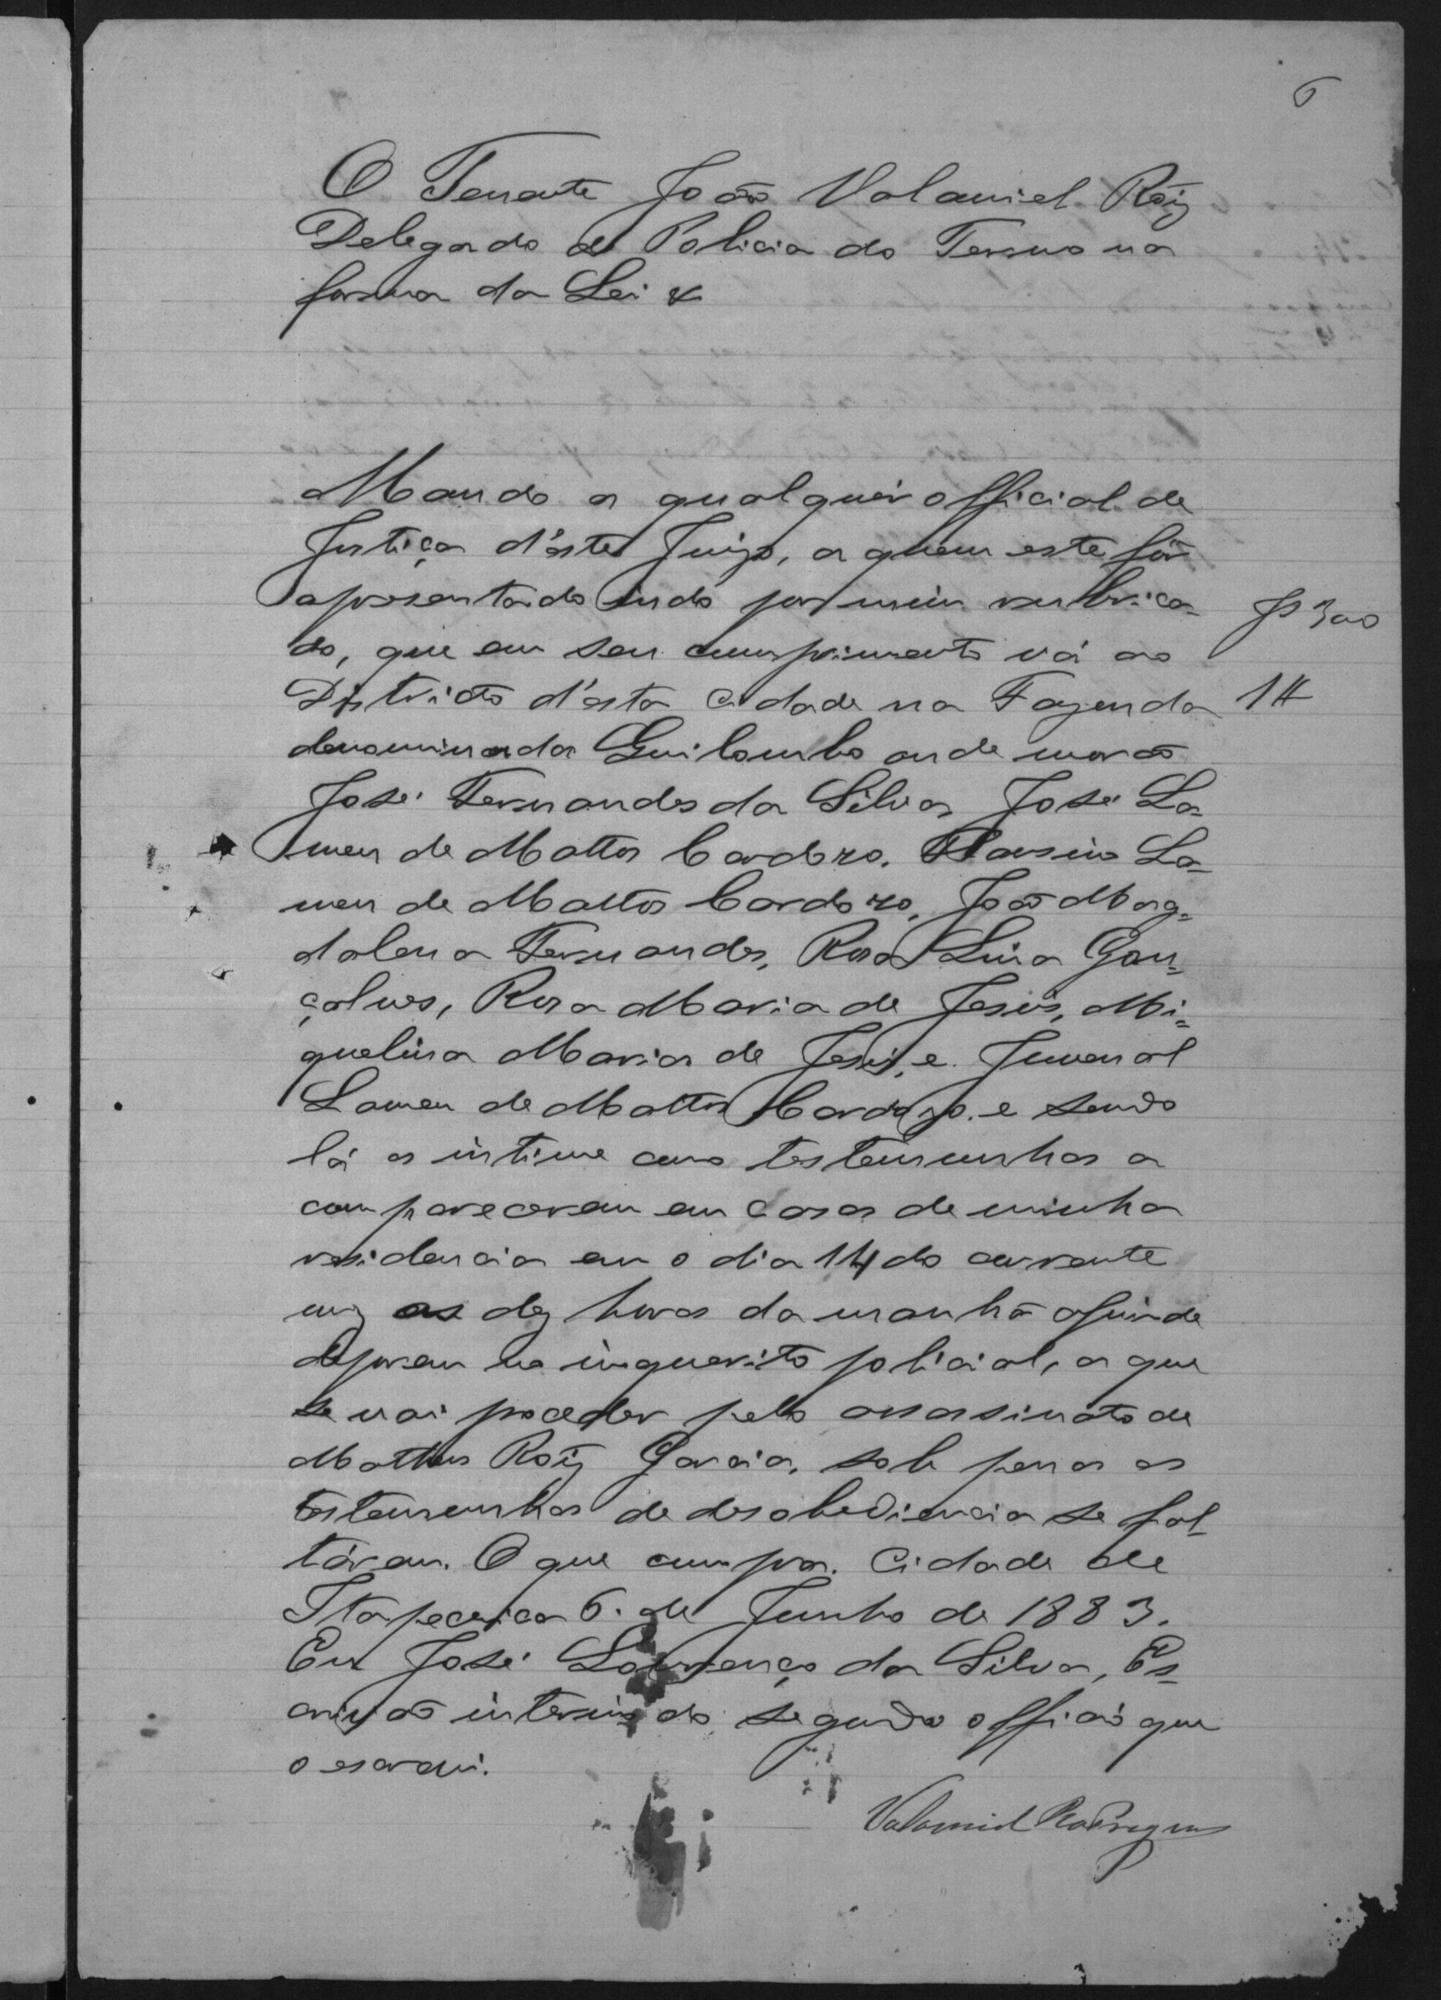 6
O Tenente João Valamiel Roiz
Delegado de Policia do Termo na
forma da Lei &
Mando a qualquér official de
Justiça d'éste Juizo, a quem este fôr
apresentado indo por mim rubrica-
do, que em seu cumprimento vá ao
Districto d'ésta Cidade na Fazenda
denominada Guilombo onde morão
José Fernandes da Silva, José La-
meu de Mattos Cardozo, Lameu de Mattos Cardozo, João Mag-
dalena Fernandes, Rosa Lina Gon-
çalves, Rosa Maria de Jesús, Mi-
quelina Maria de Jesús, e Juvenal
Lameu de Mattos Cardozo, e sendo
lá os intime como testemunhas a
comparecerem em casa de minha
residencia em o dia 14 do corrente
mez as dez horas da manhã afim de
deporem no inquerito policial, a que
se vai proceder pelo assassinato de
Matheus Roiz Garcia, sob pena as
testemunhas de desobediencia se fal-
tárem. O que cumpra. Cidade de
Itapecerica 6 de Junho de 1883.
Eu José Lourenço da Silva, Es-
crivão interino do segundo officio que
o escrevi.
Valamiel Rodrigues
300
1#